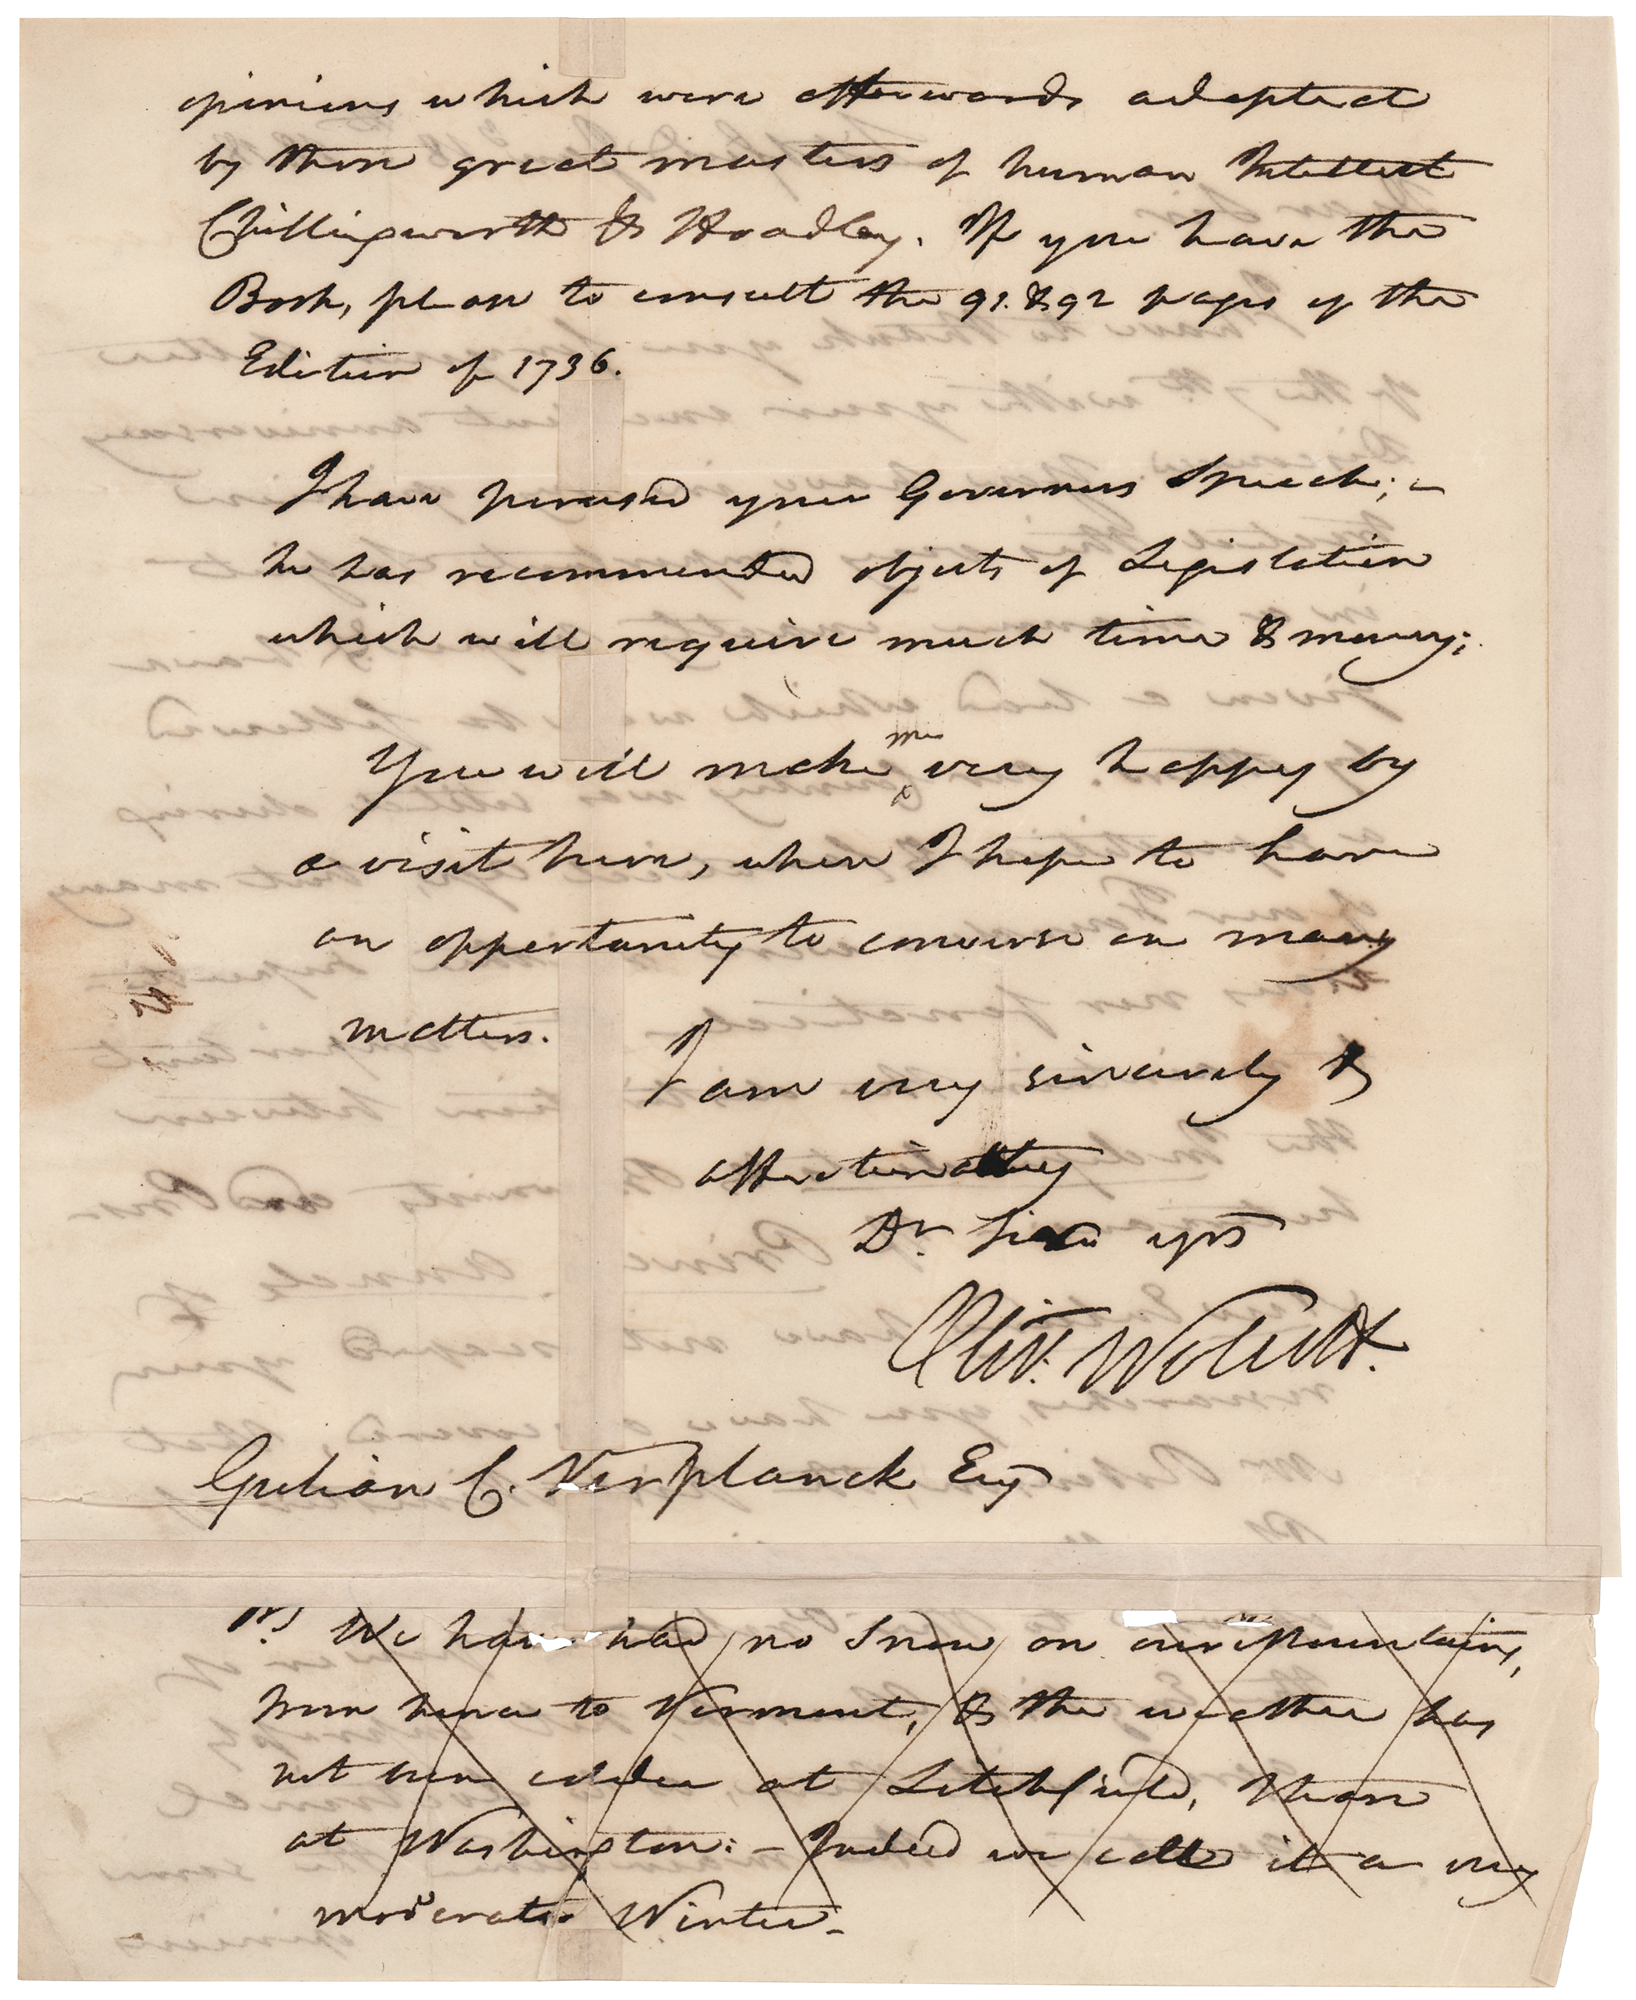 opinions which were afterwards adopted
by those great masters of human Intellect
Chillingworth & Hoadley. If you have the
Book, please to consult the 91. & 92 pages of the
Edition of 1736.
I have perused your Governors Speech; –
he has recommended objects of Legislation
which will require much time & money;
You will make me very happy by
a visit here, when I hope to have
an opportunity to converse on many
matters.
I am very sincerely &
affectionately
Dr. Sir yrs
Oliv. Wolcott.
Gulian C. Verplanck Esq
Ps. We have had no Snow on our Mountains,
from hence to Vermont, & the weather has
not been colder at Litchfield, than
at Washington: – Indeed we call it a very
moderate Winter. –